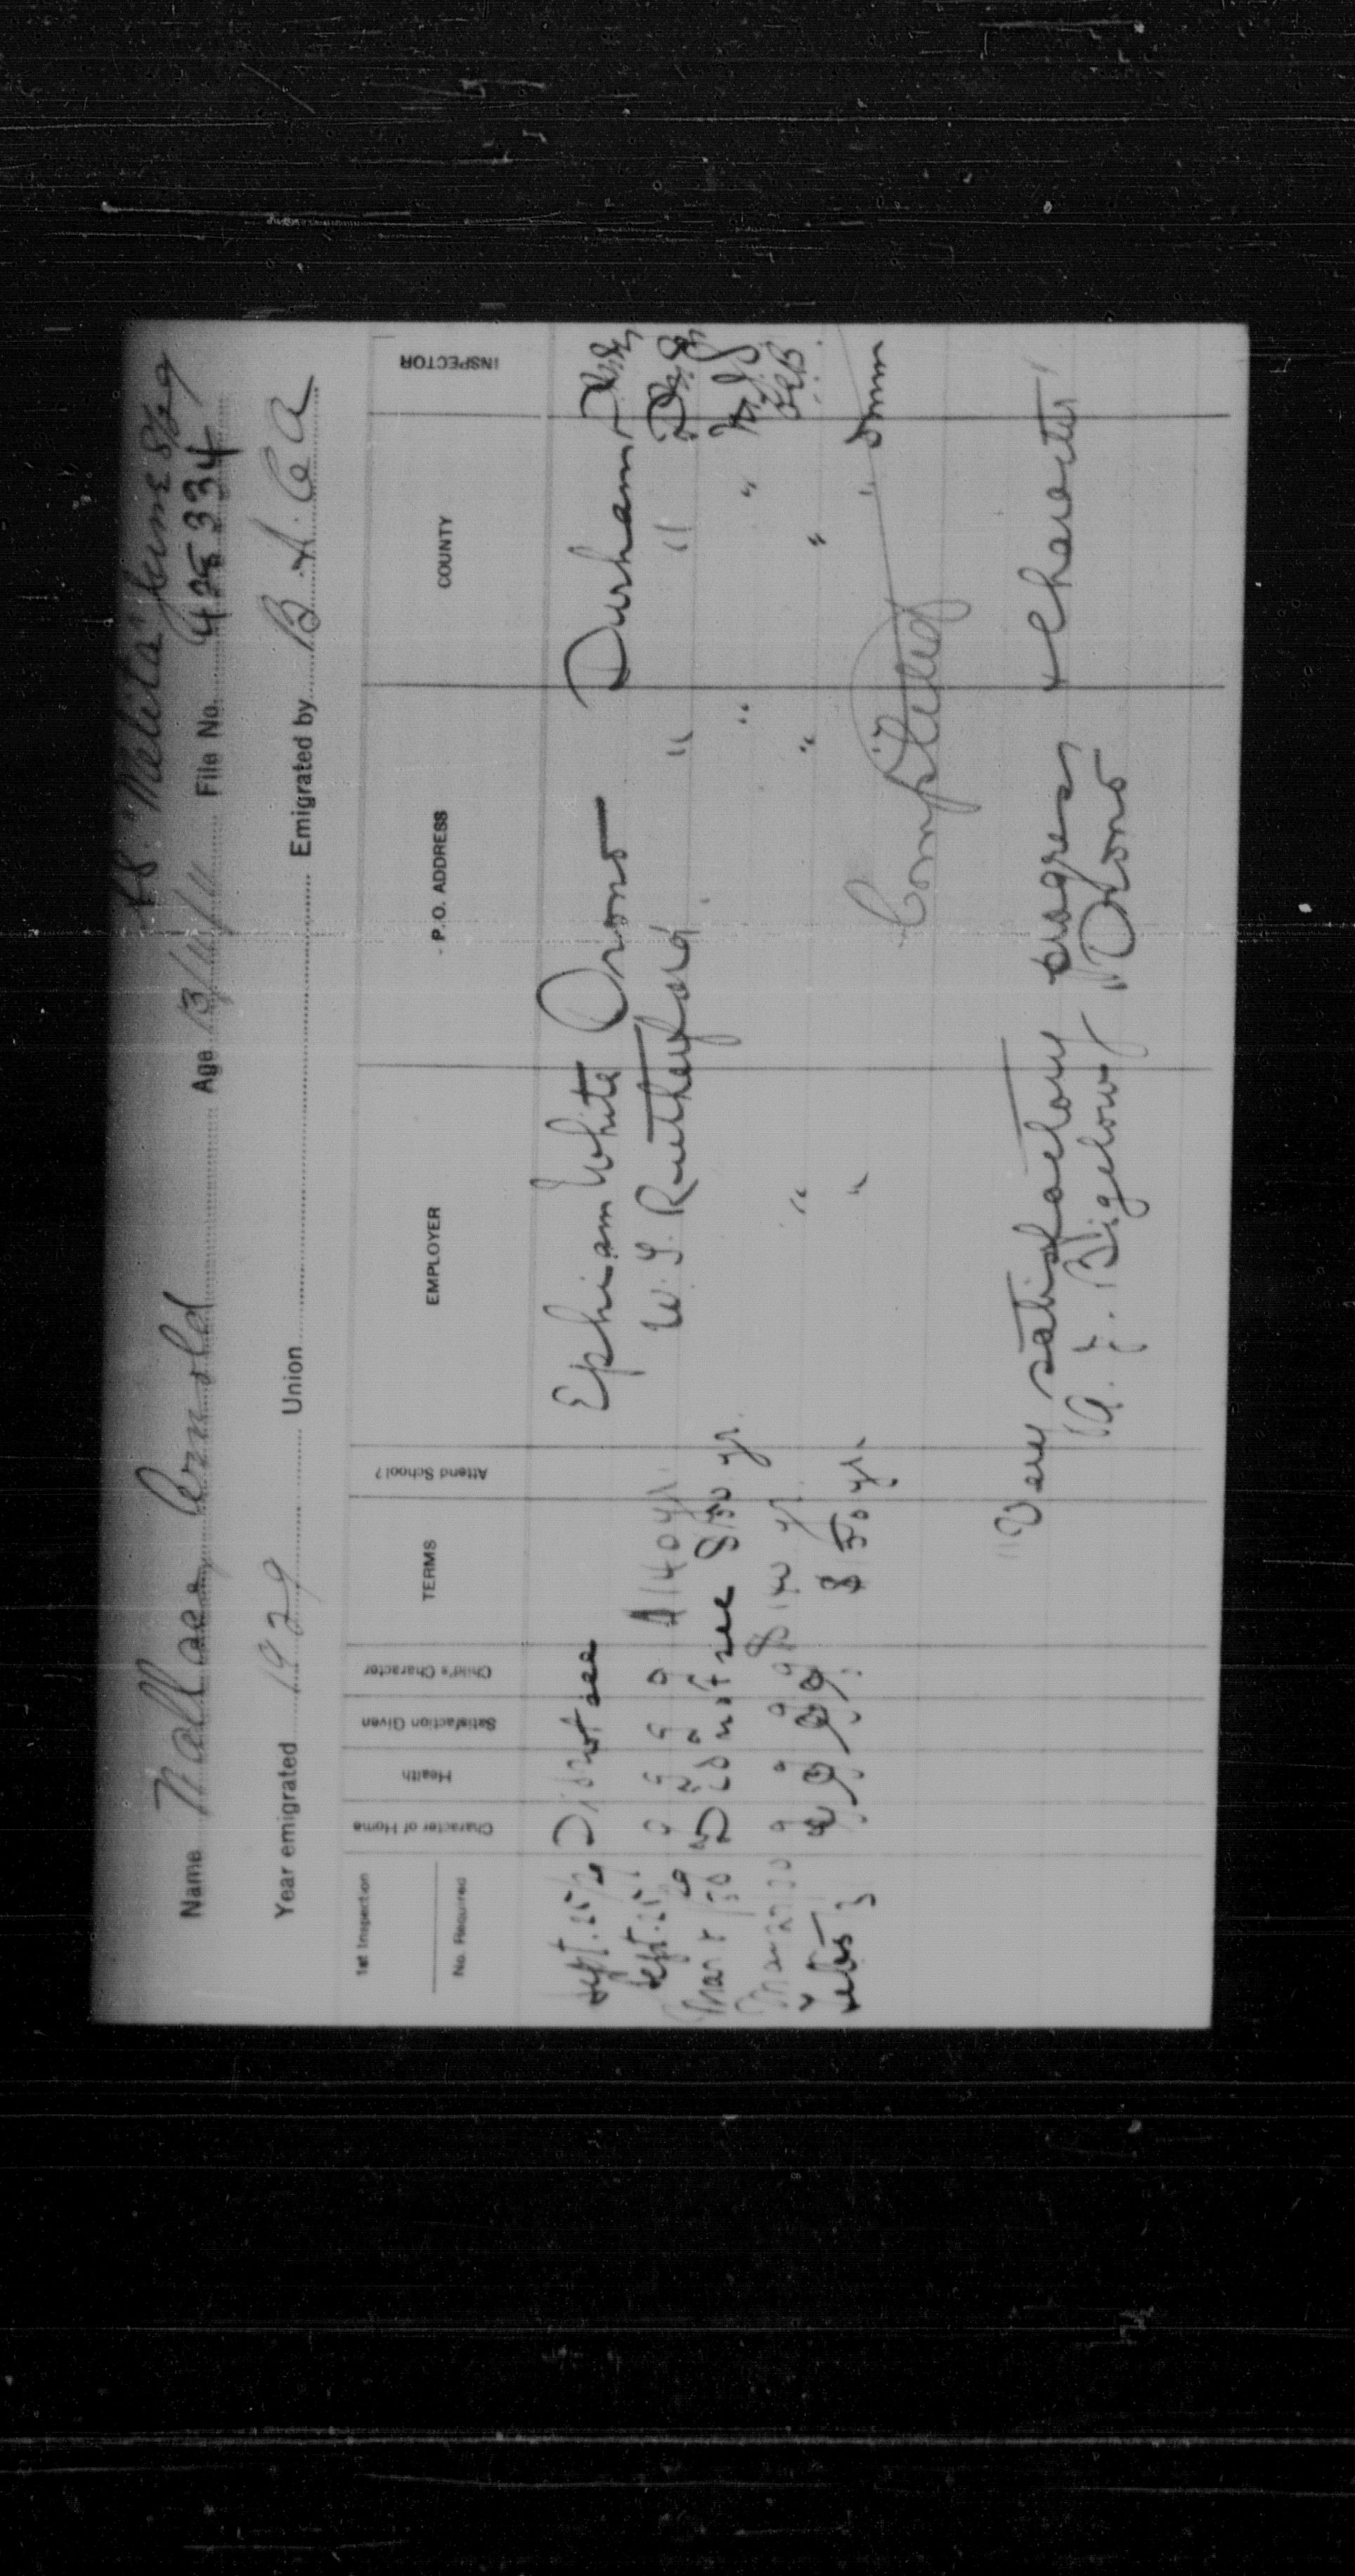 SS. "Melita" June 8/29
Name Wallace Arnold Age 13/11 File No. 425334
Year emigrated 1929 Union Emigrated by B. A. C A
1st Inspection
No. Required
Character of Home Health Satisfaction Given Child's Character TERMS Attend School? EMPLOYER P.O. ADDRESS COUNTY INSPECTOR
Sept. 25/29 Did not see Ephriam White Orono Durham
Sept. 25/29 g g g g $140 yr. W. L. Rutherford " "
Mar /30 Did not see $150 yr. " "
Mar 27 30 g g g g $140 yr. " " "
Feb 5 31 $50 yr. " " "
Completed
"Very satisfactory progress & character"
(A. J. Bigelow) Orono